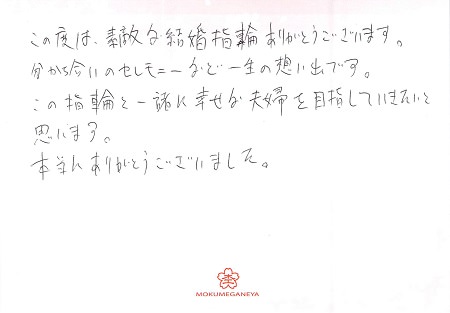 この度は、素敵な結婚指輪ありがとうございます。
分かち合いのセレモニーなど一生の想い出です。
この指輪と一緒に幸せな夫婦を目指していきたいと
思います。
本当にありがとうございました。
MOKUMEGANEYA